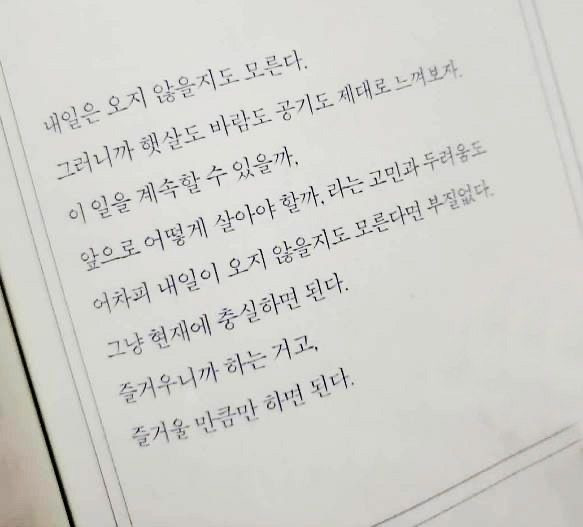 내일은 오지 않을지도 모른다.
그러니까 햇살도 바람도 공기도 제대로 느껴보자.
이 일을 계속할 수 있을까,
앞으로 어떻게 살아야 할까, 라는 고민과 두려움도
어차피 내일이 오지 않을지도 모른다면 부질없다.
그냥 현재에 충실하면 된다.
즐거우니까 하는 거고,
즐거울 만큼만 하면 된다.